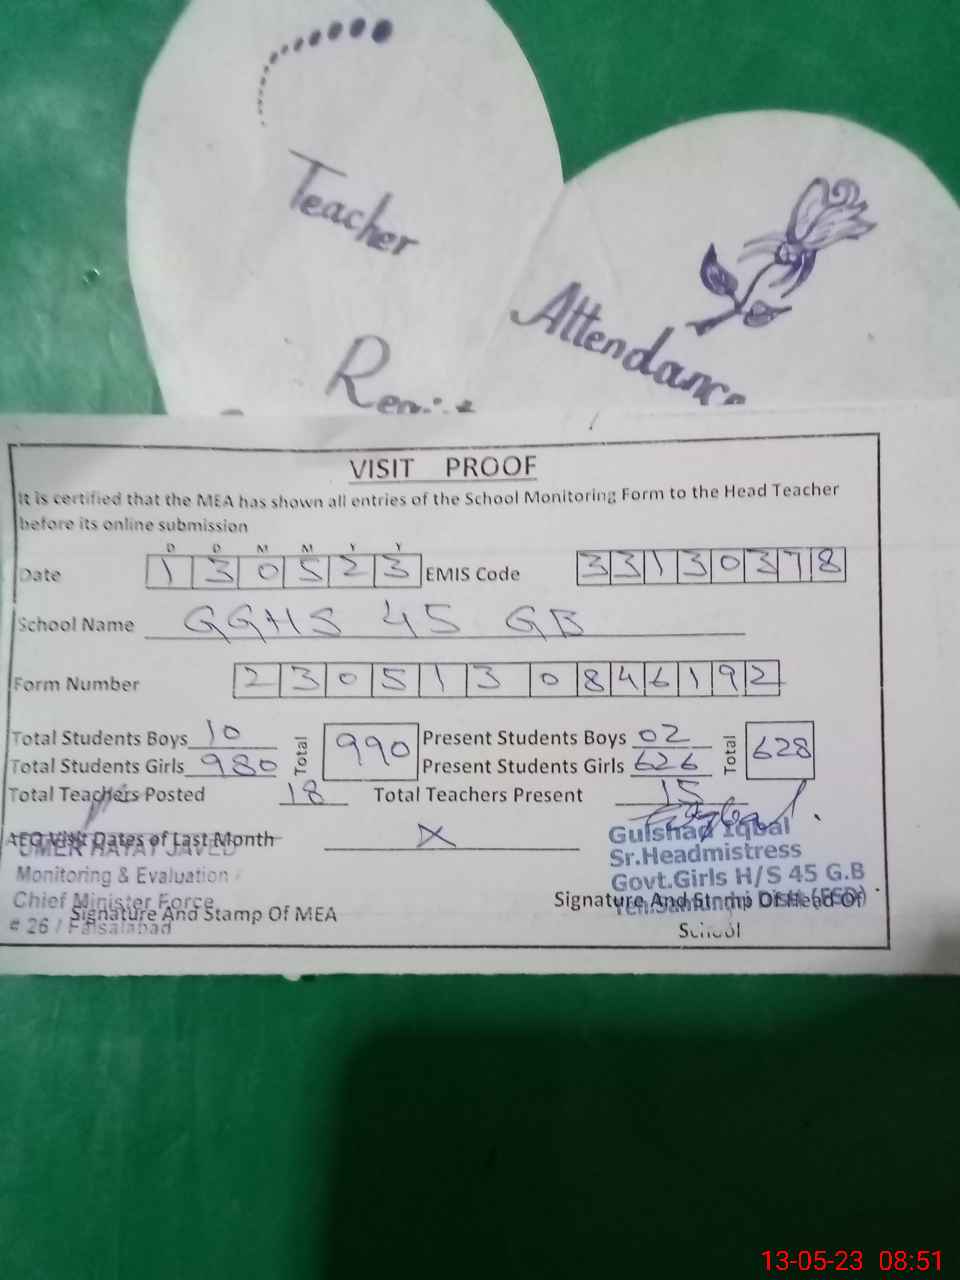 Teacher
Attendance
VISIT PROOF
It is certified that the MEA has shown all entries of the School Monitoring Form to the Head Teacher
before its online submission
D D M M Y Y
Date 1 3 0 5 2 3 EMIS Code 3 3 1 3 0 3 7 8
School Name GGHS 45 GB
Form Number 2 3 0 5 1 3 0 8 4 6 1 9 2
Total Students Boys 10 Total 990 Present Students Boys 02 Total 628
Total Students Girls 980 Present Students Girls 626
Total Teachers Posted 18 Total Teachers Present 15
AEO Visit Dates of Last Month X
UMER HAYAT JAVED
Monitoring & Evaluation
Chief Minister Force
# 26 / Faisalabad
Signature And Stamp Of MEA
Gulshad Iqbal
Sr.Headmistress
Govt.Girls H/S 45 G.B
Signature And Stamp Of Head Of
School
13-05-23 08:51